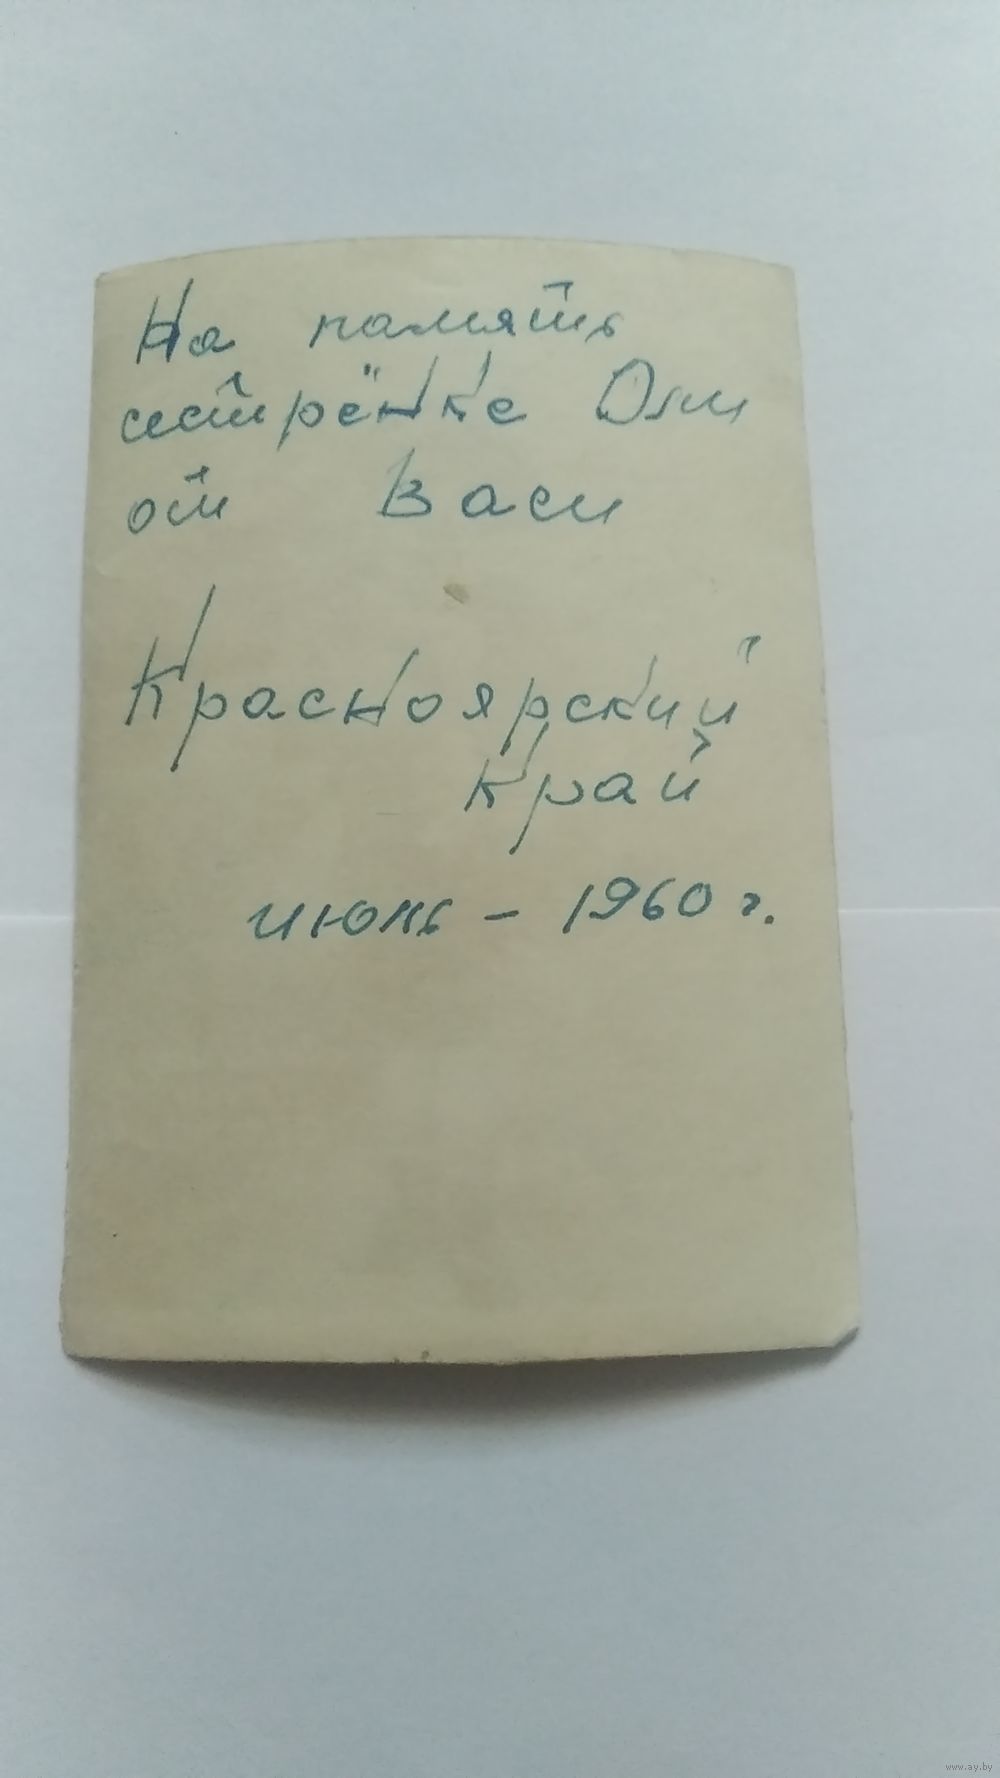 На память
сестрёнке Оли
от Васи
Красноярский
край
июнь - 1960 г.
www.ay.by